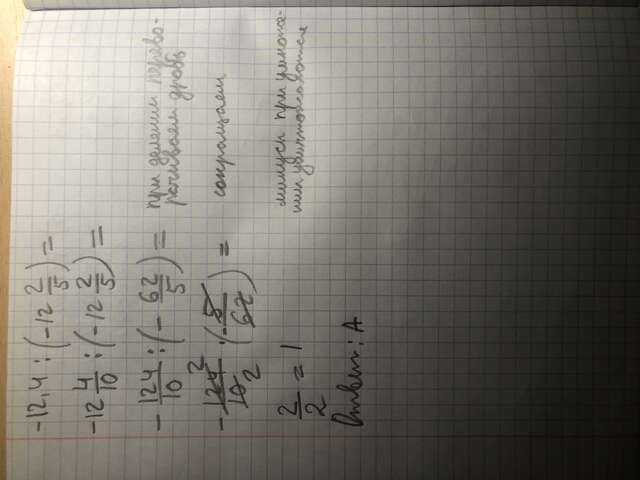 -12,4 : (-12 2/5) =
-12 4/10 : (-12 2/5) =
- 124/10 : (- 62/5) = при делении перево-
рачиваем дробь
- 124/10 · (- 5/62) = сокращаем
2 2
2/2 = 1 минусы при умноже-
нии уничтожаются
Ответ: А